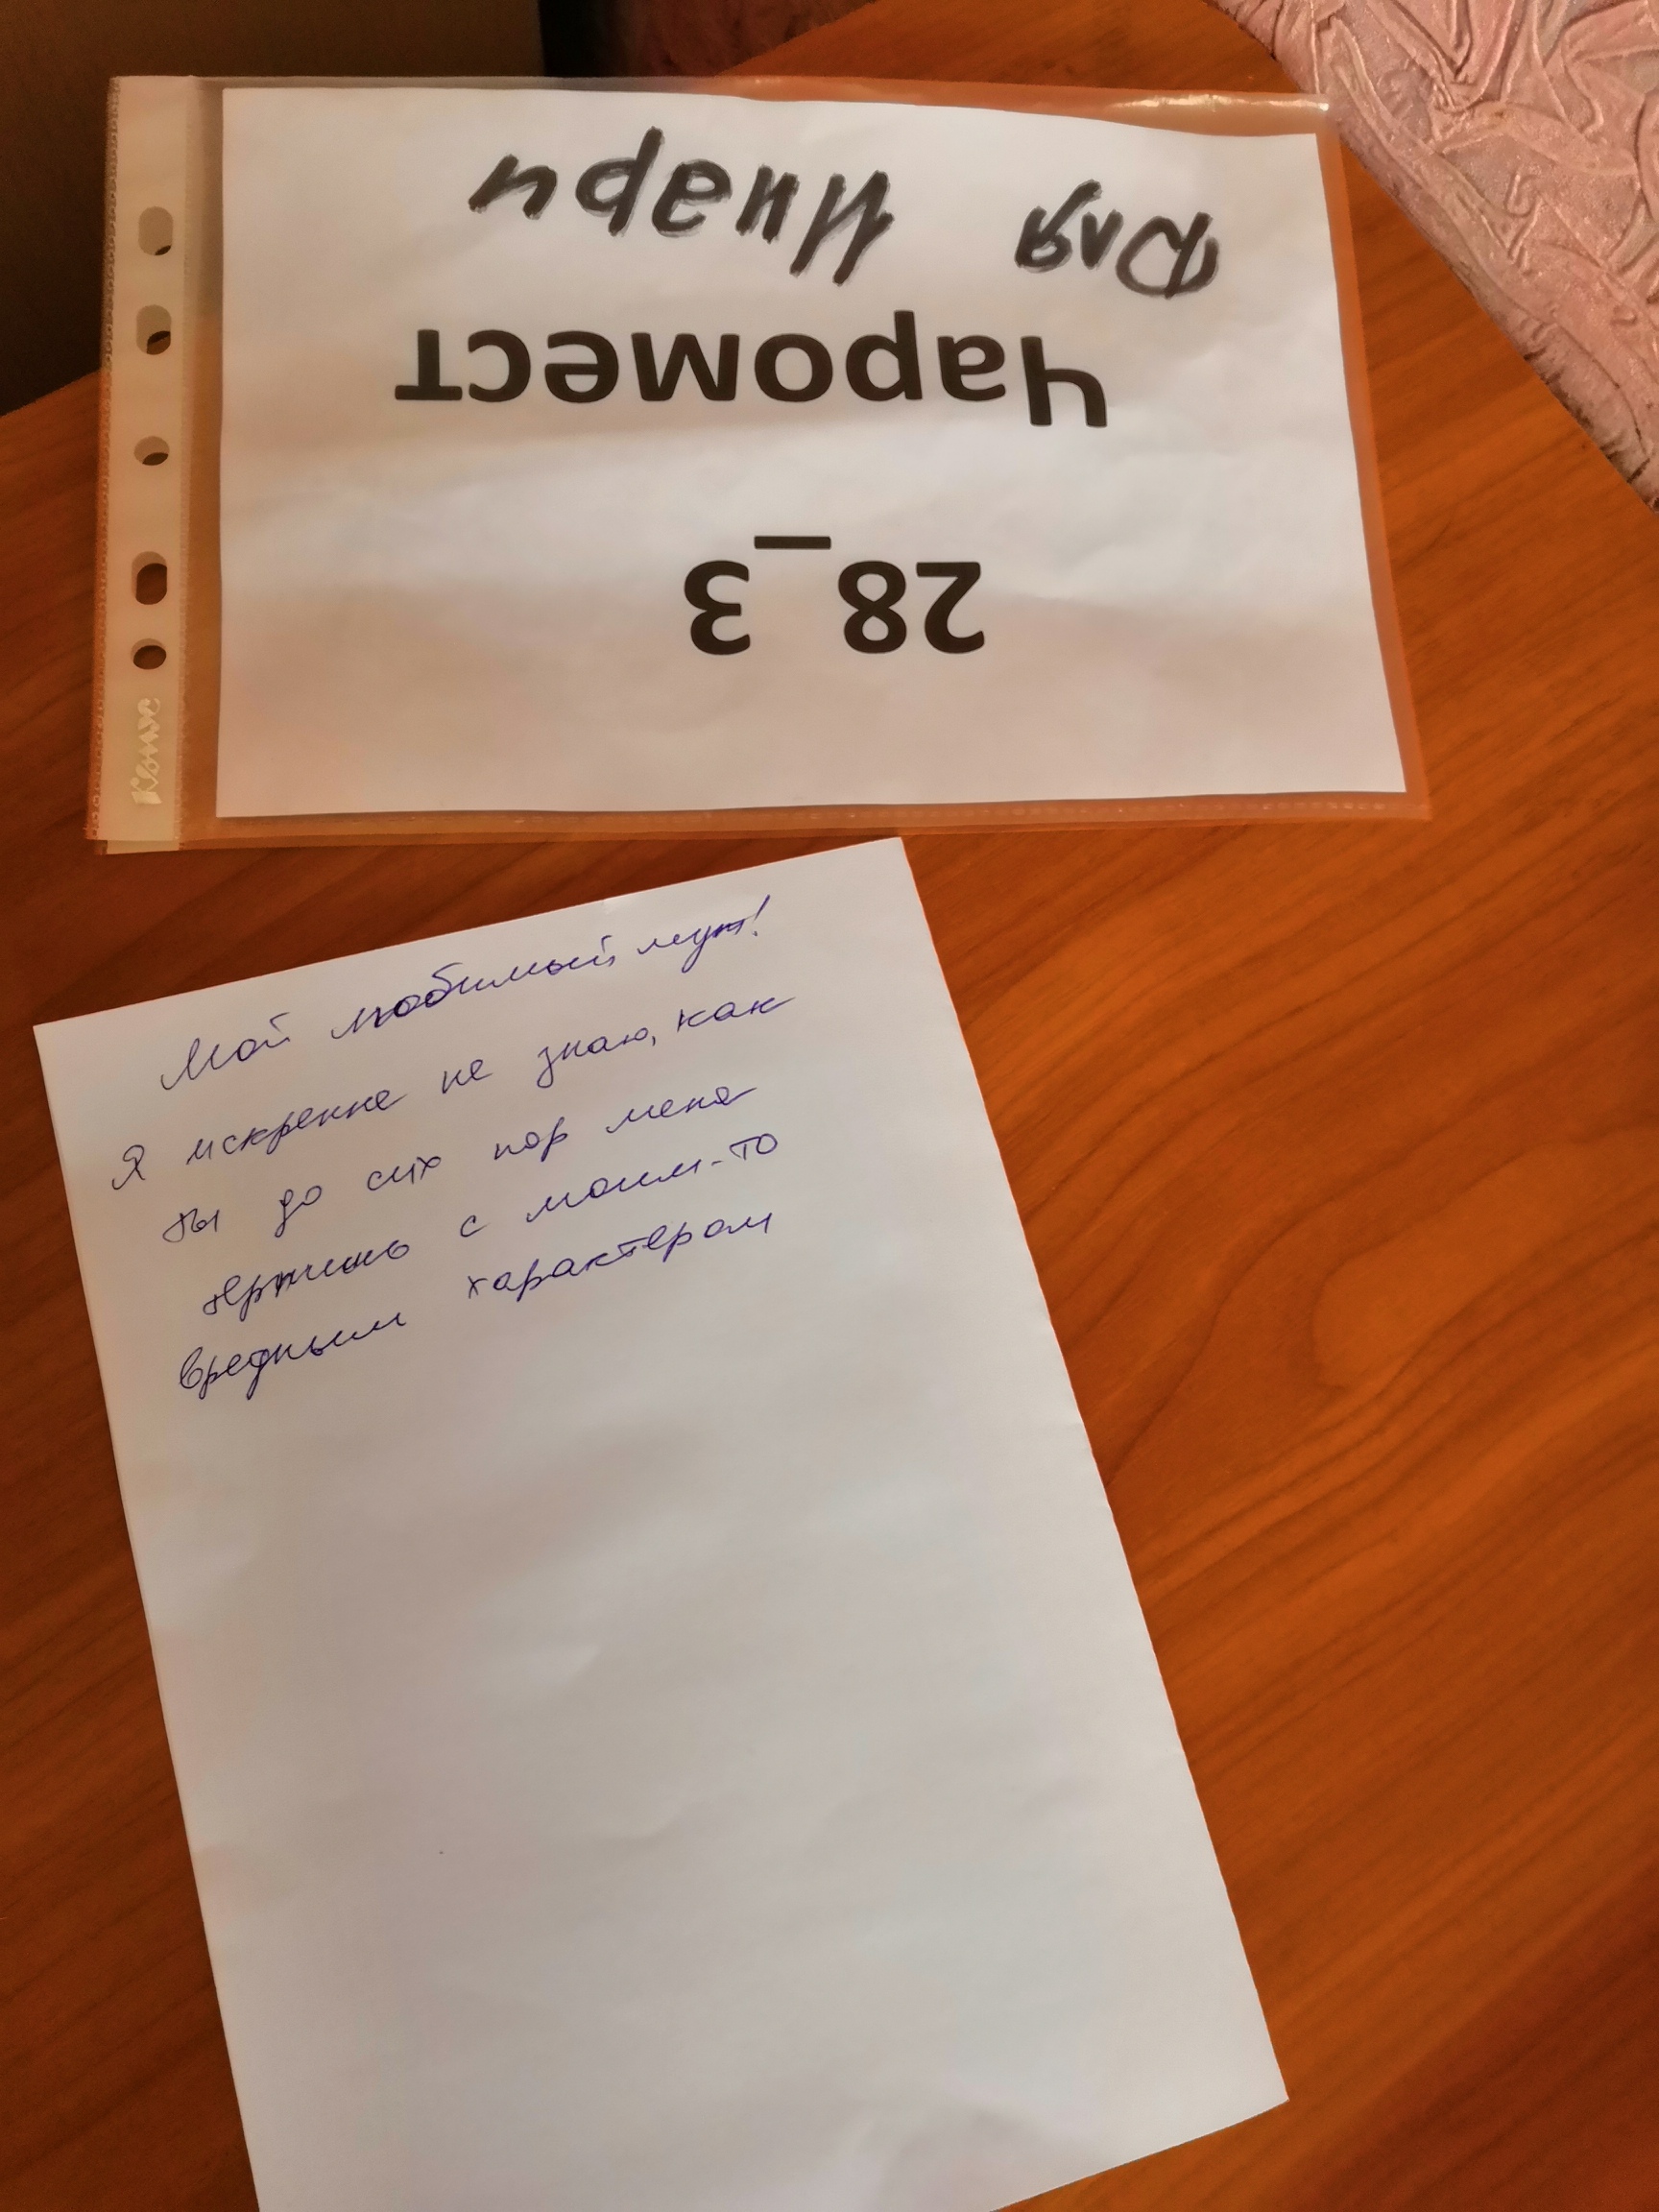 28_3
Чаромест
Для Инари
Комус
Мой любимый муж!
Я искренне не знаю, как
ты до сих пор меня
држишь с моим-то
вредным характером